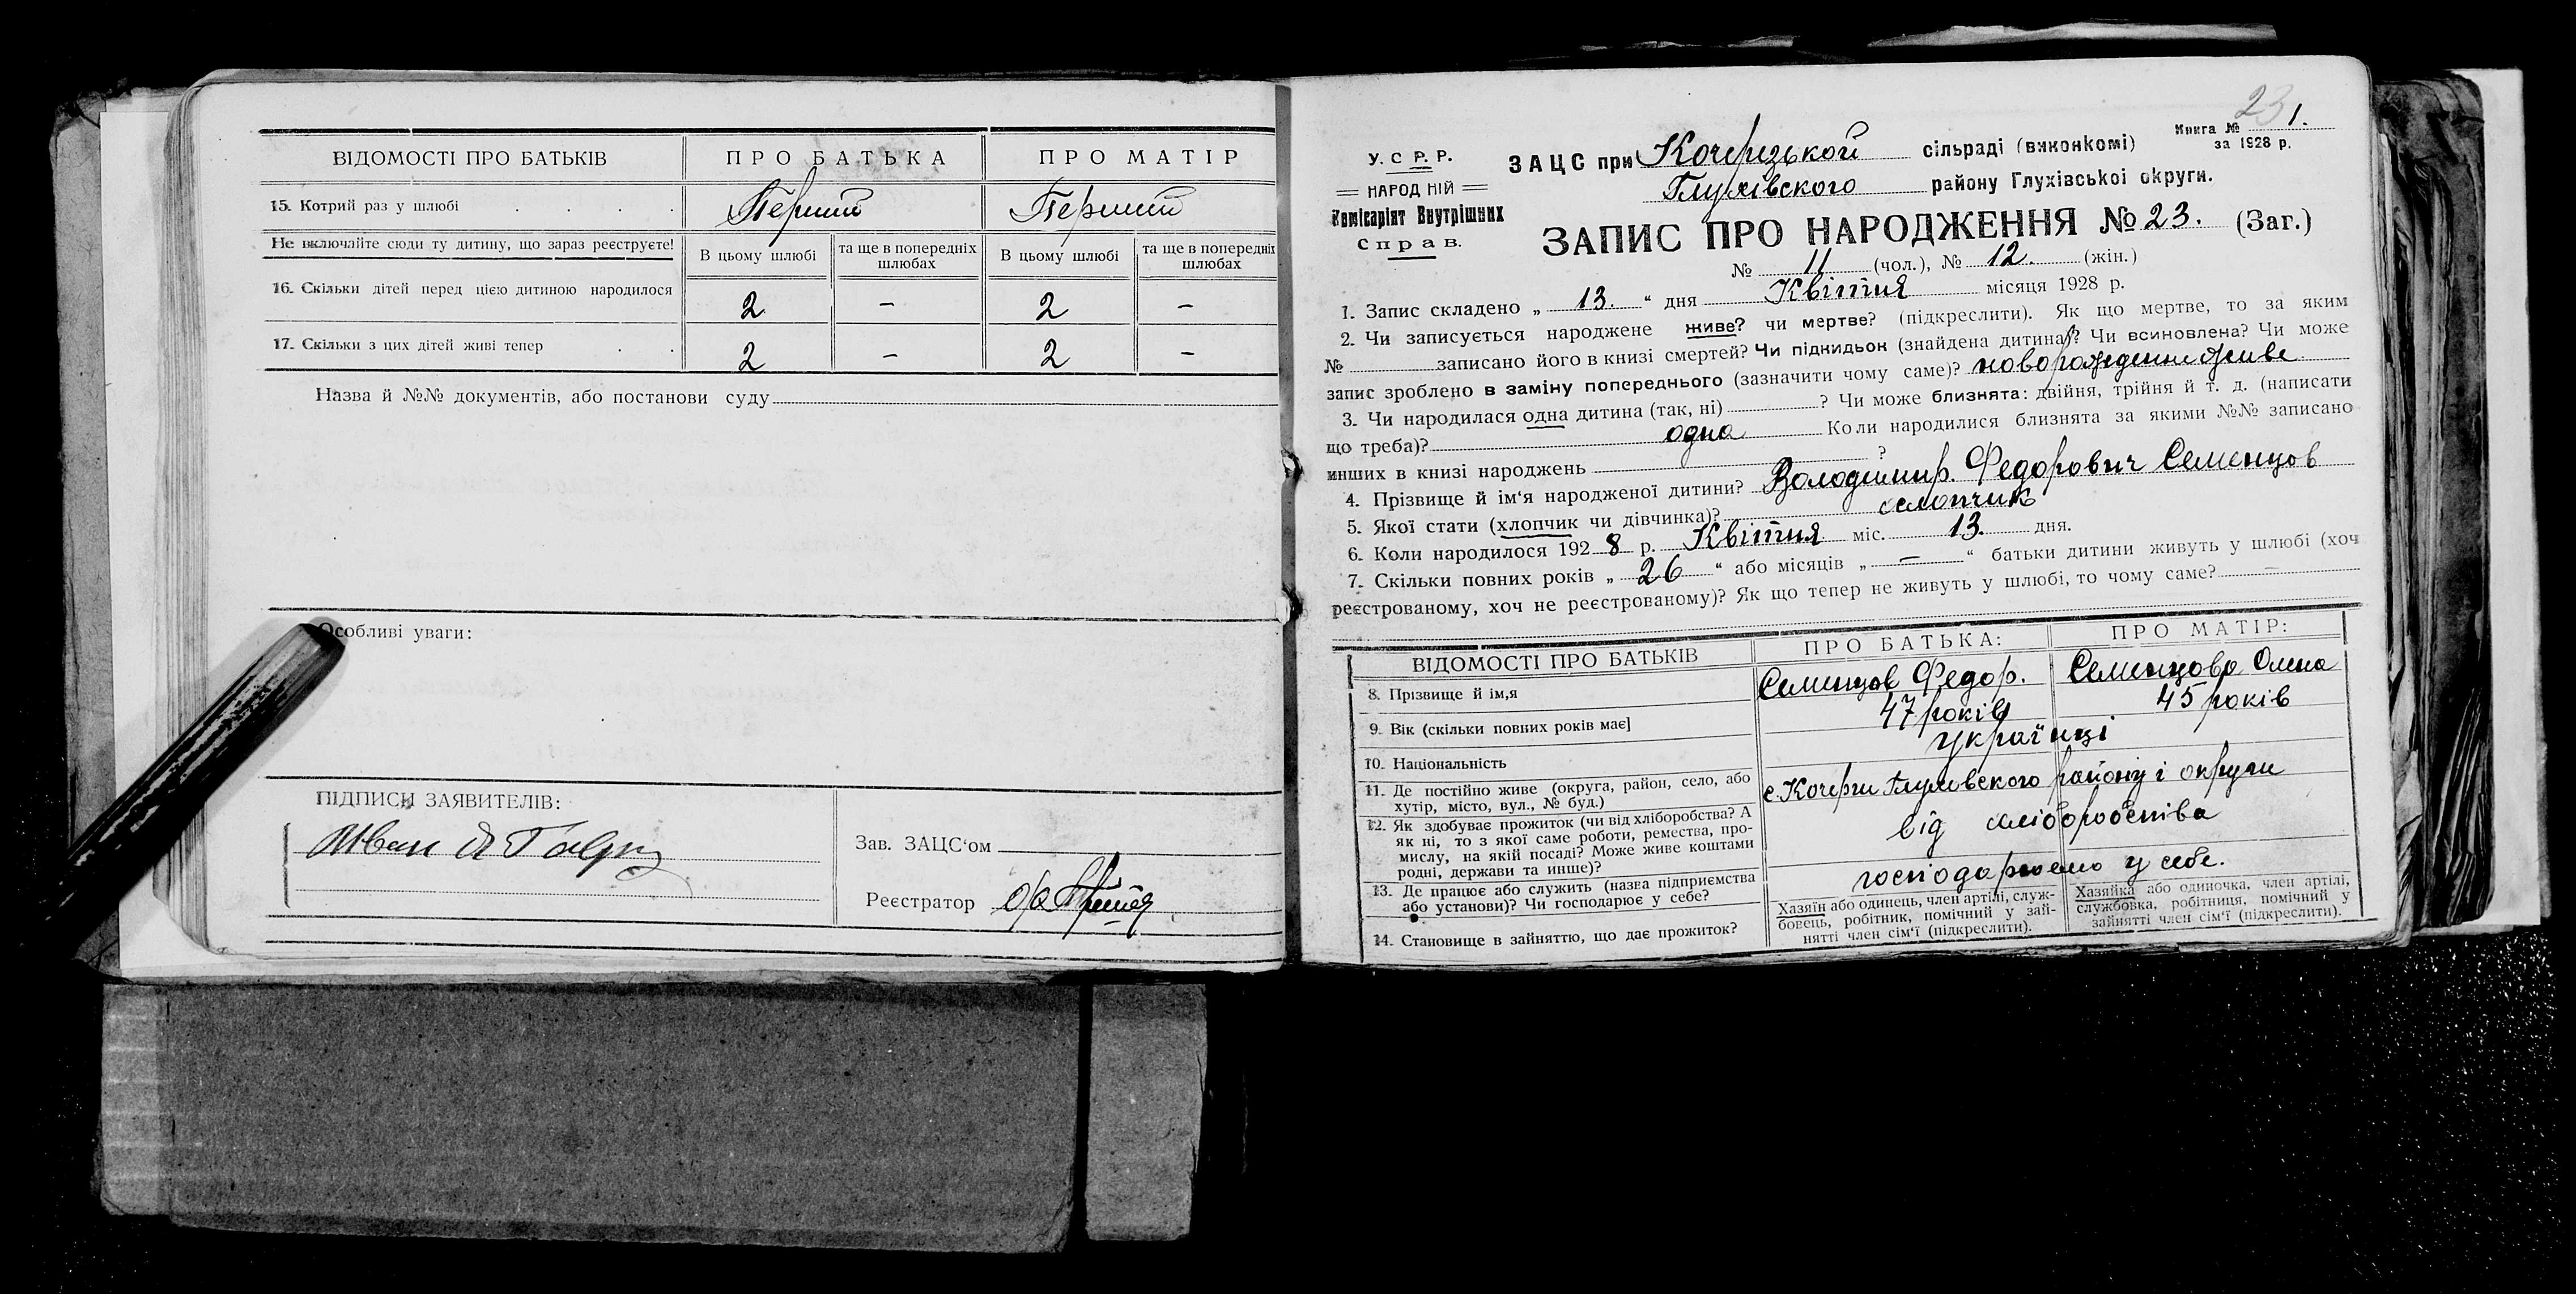 ВІДОМОСТІ ПРО БАТЬКІВ ПРО БАТЬКА ПРО МАТІР
15. Котрий раз у шлюбі . . . . Перший Перший
Не включайте сюди ту дитину, що зараз реєструєте! В цьому шлюбі та ще в попередніх шлюбах В цьому шлюбі та ще в попередніх шлюбах
16. Скільки дітей перед цією дитиною народилося 2 – 2 –
17. Скільки з цих дітей живі тепер . . 2 – 2 –
Назва й №№ документів, або постанови суду
Особливі уваги:
ПІДПИСИ ЗАЯВИТЕЛІВ:
Иван
Зав. ЗАЦС‘ом
Реєстратор
23 1.
Книга №
за 1928 р.
У. С Р. Р.
НАРОДНІЙ
Комісаріят Внутрішних
Справ.
ЗАЦС при Кочерзької сільраді (виконкомі)
Глухівского району Глухівської округи.
ЗАПИС ПРО НАРОДЖЕННЯ № 23. (Заг.)
№ 11 (чол.), № 12. (жін.)
1. Запис складено „ 13. “ дня Квітня місяця 1928 р.
2. Чи записується народжене живе? чи мертве? (підкреслити). Як що мертве, то за яким
№ записано його в книзі смертей? Чи підкидьок (знайдена дитина)? Чи всиновлена? Чи може
запис зроблено в заміну попереднього (зазначити чому саме)? новорожденне живе
3. Чи народилася одна дитина (так, ні) ? Чи може близнята: двійня, трійня й т. д. (написати
що треба)? одна Коли народилися близнята за якими №№ записано
инших в книзі народжень ?
4. Прізвище й ім‘я народженої дитини? Володимир. Федорович Семенцов
5. Якої стати (хлопчик чи дівчинка)? хлопчик
6. Коли народилося 1928 р. Квітня міс. 13. дня.
7. Скільки повних років „ 26 “ або місяців „ – “ батьки дитини живуть у шлюбі (хоч
реєстрованому, хоч не реєстрованому)? Як що тепер не живуть у шлюбі, то чому саме? –
ВІДОМОСТІ ПРО БАТЬКІВ ПРО БАТЬКА: ПРО МАТІР:
8. Прізвище й ім,я Семенцов Федор. Семенцова Олена
9. Вік (скільки повних років має] 47 років 45 років
10. Національність українці
11. Де постійно живе (округа, район, село, або
хутір, місто, вул., № буд.) с. Кочерги Глухівского району і округи
12. Як здобуває прожиток (чи від хліборобства? А
як ні, то з якої саме роботи, ремества, про-
мислу, на якій посаді? Може живе коштами
родні, держави та инше)? від хліборобства
13. Де працює або служить (назва підприємства
або установи)? Чи господарює у себе? господарюемо у себе.
14. Становище в зайняттю, що дає прожиток?
Хазяїн або одинець, член артілі, служ-
бовець, робітник, помічний у зай-
нятті член сім‘ї (підкреслити).
Хазяйка або одиночка, член артілі,
службовка, робітниця, помічний у
зайнятті член сім‘ї (підкреслити).